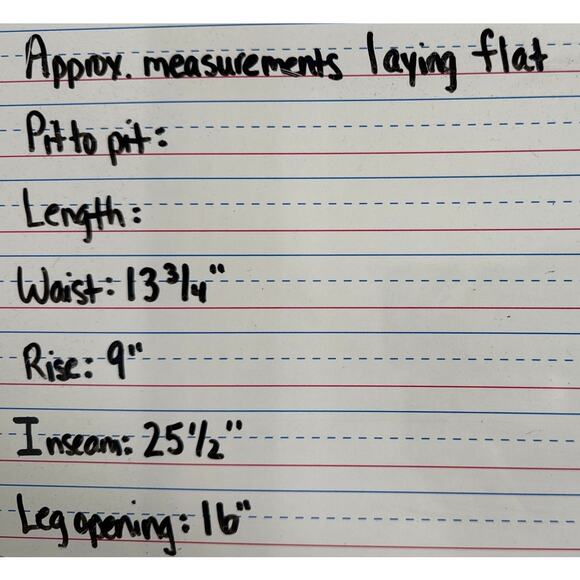 Approx. measurements laying flat
Pit to pit:
Length:
Waist: 13 3/4"
Rise: 9"
Inseam: 25 1/2"
Leg opening: 16"